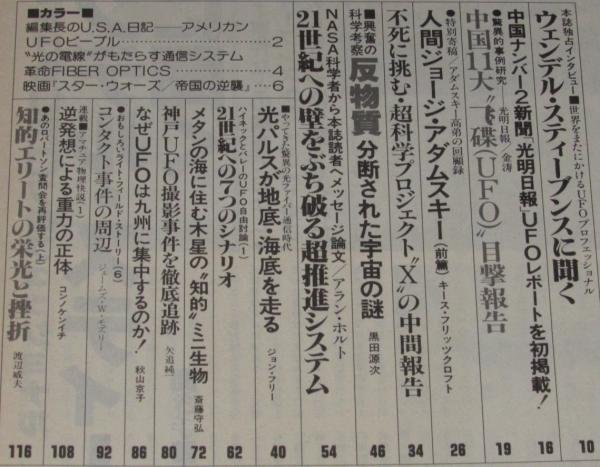 ■カラー■
編集長のU.S.A.日記――アメリカン
UFOピープル――2
“光の電線”がもたらす通信システム
革命FIBER OPTICS――4
映画『スター・ウォーズ/帝国の逆襲』…6
本誌独占インタビュー■世界をまたにかけるUFOプロフェッショナル
ウェンデル・スティーブンスに聞く 10
中国ナンバー2新聞「光明日報」UFOレポートを初掲載! 16
●驚異的事例研究
中国11大“飛碟(UFO)”目撃報告 光明日報/金涛 19
●特別寄稿/アダムスキー高弟の回顧録
人間ジョージ・アダムスキー(前篇) キース・フリッツクロフト 26
不死に挑む・超科学プロジェクト“X”の中間報告 34
■興奮の科学考察
反物質 分断された宇宙の謎 黒田源次 46
NASA科学者から本誌読者へメッセージ論文/アラン・ホルト
21世紀への壁をぶち破る超推進システム 54
■やってきた驚異の光ファイバー通信時代
光パルスが地底・海底を走る ジョン・フリー 40
ハイネックとバレーのUFO自由討論(1)
21世紀への7つのシナリオ 62
メタンの海に住む木星の“知的”ミニ生物 斎藤守弘 72
神戸UFO撮影事件を徹底追跡 矢追純一 80
なぜUFOは九州に集中するのか! 秋山京子 86
●おもしろライト・フィールド・ストーリー(6)
コンタクト事件の周辺 ジェームズ・W・モズリー 92
連載■マチュア物理快説(1)
逆発想による重力の正体 コンノケンイチ 108
●あのロバートソン査問会を再評価する(上)
知的エリートの栄光と挫折 渡辺威夫 116